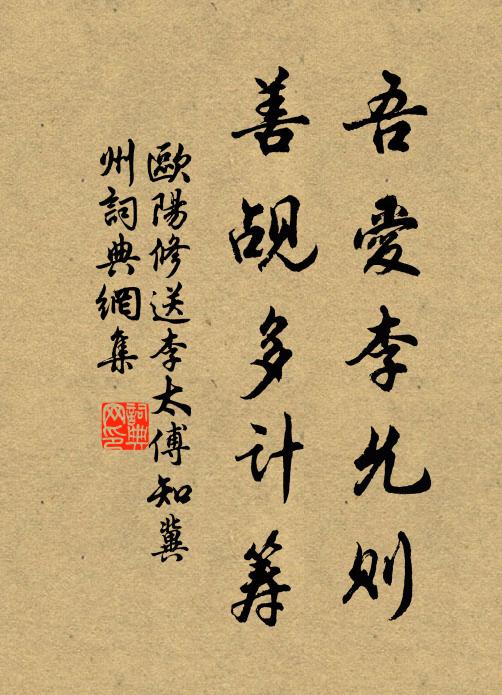 吾愛李允則
善觇多計筹
歐陽修送李太傅知冀
州詞典網集
詞典
网印